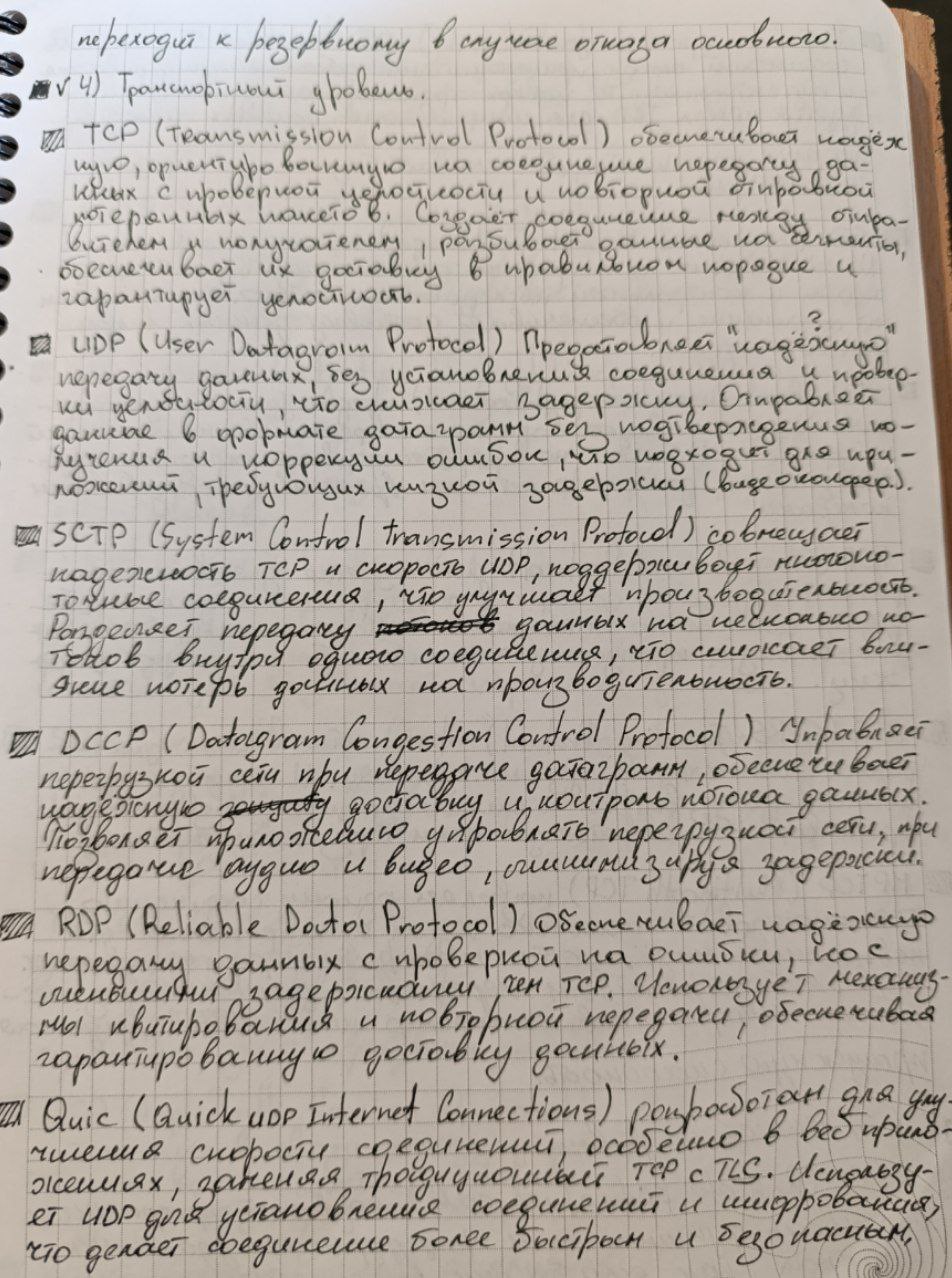 переходит к резервному в случае отказа основного.
✓ 4) Транспортный уровень.
TCP (Transmission Control Protocol) обеспечивает надёж
ную, ориентированную на соединение передачу да-
нных с проверкой целостности и повторной отправкой
потерянных пакетов. Создаёт соединение между отпра-
вителем и получателем, разбивает данные на сегменты,
обеспечивает их доставку в правильном порядке и
гарантирует целостность.
?
UDP (User Datagram Protocol) Предоставляет "надёжную"
передачу данных, без установления соединения и провер-
ки целостности, что снижает задержку. Отправляет
данные в формате датаграмм без подтверждения по-
лучения и коррекции ошибок, что подходит для при-
ложений, требующих низкой задержки (видеоконфер.).
SCTP (System Control transmission Protocol) совмещает
надежность TCP и скорость UDP, поддерживает многопо-
точные соединения, что улучшает производительность.
Разделяет передачу потоков данных на несколько по-
токов внутри одного соединения, что снижает вли-
яние потерь данных на производительность.
DCCP (Datagram Congestion Control Protocol) Управляет
перегрузкой сети при передаче датаграмм, обеспечивает
надежную защиту доставку и контроль потока данных.
Позволяет приложению управлять перегрузкой сети, при
передаче аудио и видео, минимизируя задержки.
RDP (Reliable Data Protocol) Обеспечивает надёжную
передачу данных с проверкой на ошибки, но с
меньшими задержками, чем TCP. Использует механиз-
мы квитирования и повторной передачи, обеспечивая
гарантированную доставку данных.
Quic (Quick UDP Internet Connections) разработан для улу-
чшения скорости соединений, особенно в веб прило-
жениях, заменяя традиционный TCP с TLS. Использу-
ет UDP для установления соединений и шифрования,
что делает соединение более быстрым и безопасным.